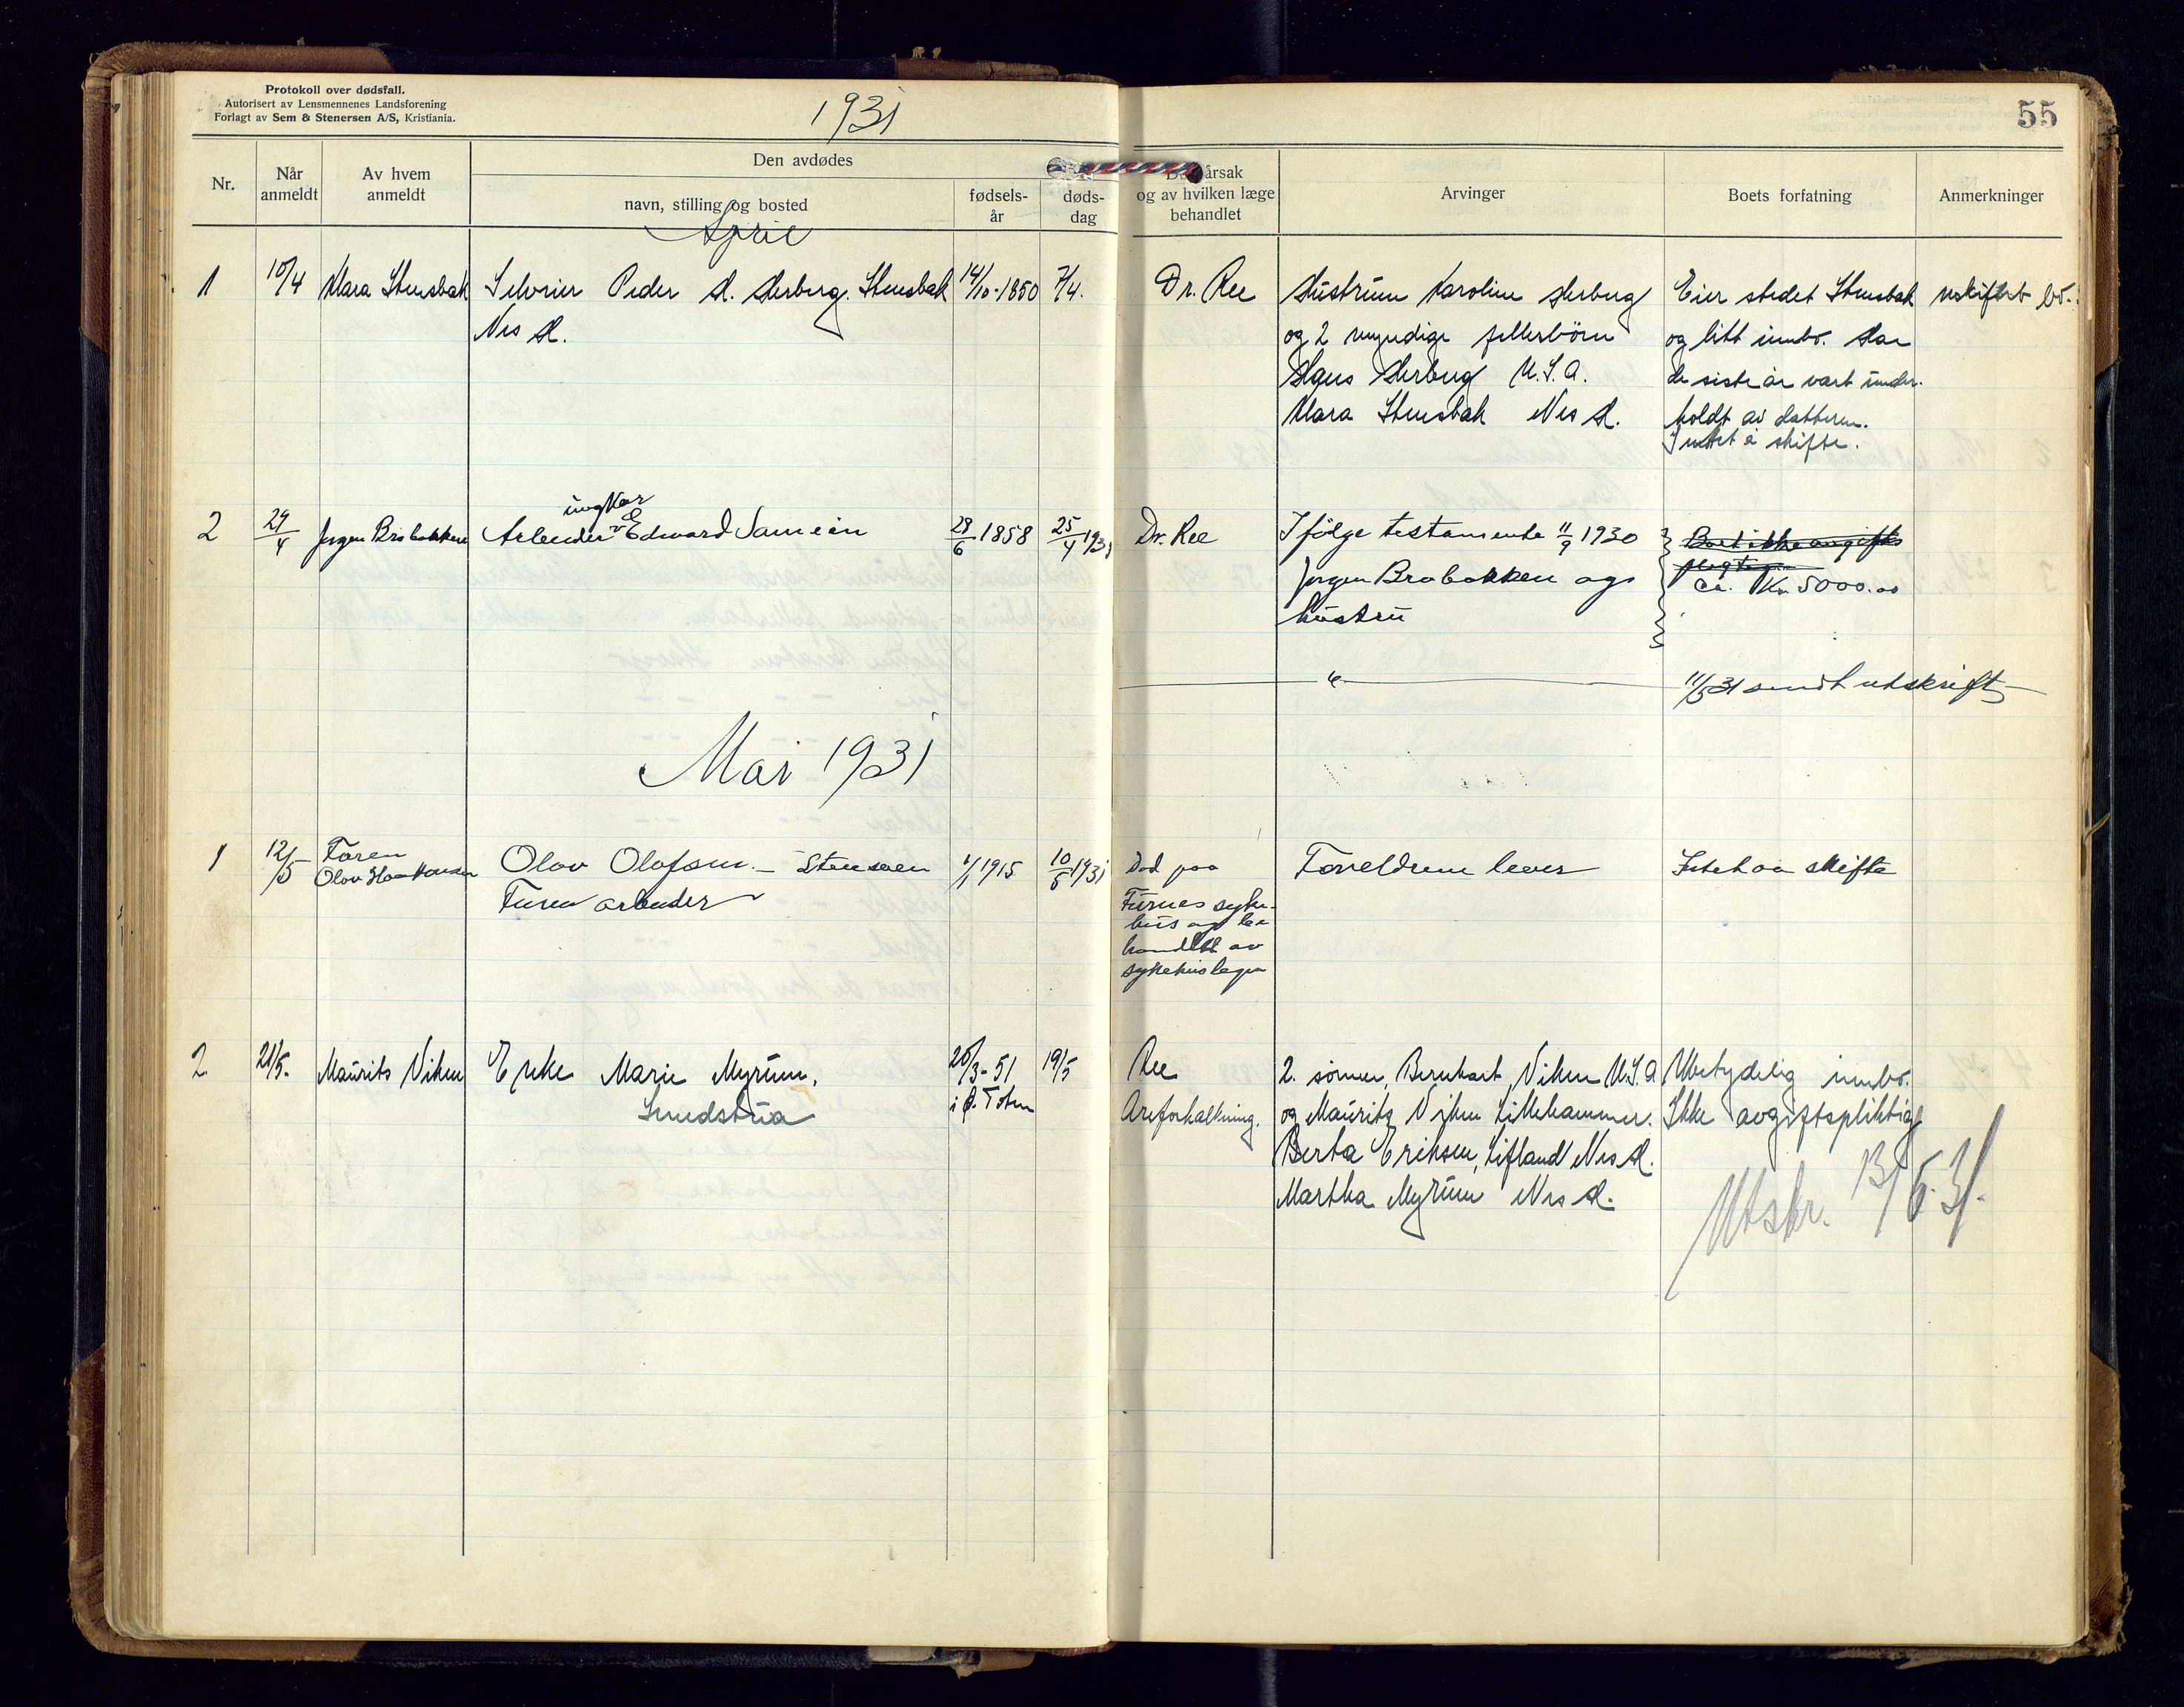 Protokoll over dødsfall.
Autorisert av Lensmennenes Landsforening
Forlagt av Sem & Stenersen A/S, Kristiania.
1931
55
Nr.
Når
anmeldt
Av hvem
anmeldt
Den avdødes
navn, stilling og bosted
fødsels-
år
døds-
dag
årsak
og av hvilken læge
behandlet
Arvinger
Boets forfatning
Anmerkninger
April
1 10/4 Klara Stensbak Selveier Peder H. Herberg. Stensbak 14/10-1850 7/4. Dr. Ree Hustruen Karoline Herberg Eier stedet Stensbak uskiftet bo.
Nes H. og 2 myndige fellesbörn og litt innbo. Har
Hans Herberg U.S.A. de siste år vært under-
Klara Stensbak Nes H. holdt av datteren.
Intet å skifte.
ungkar
2 29/4 Jørgen Brobakken Arbeider Edward Samuein 28/6 1858 25/4 1931 Dr. Ree Ifölge testamente 11/9 1930 Boet ikke avgifts
pligtig
Jørgen Brobakken ogs ca. Kr. 5000.00
hustru
" 11/5 31 sendt utskrift
Mai 1931
1 12/5 Faren Olov Olofsen - Stensveen 1/1 1915 10/5 1931 Död paa Foreldrene lever Intet aa skifte
Olov Haakonsen Furen arbeider Furnes syke-
hus og be-
handlet av
sykehuslegen
2 21/5. Maurits Viken Enke Marie Myruen, 20/3-51 19/5 Ree 2. sönner, Bernhart Viken U.S.A. Ubetydelig innbo.
Sundstua i Ø. Toten Areforkalkning. og Maurits Viken Lillehammer. Ikke avgiftspliktig
Berta Eriksen, Lifland Nes H.
Martha Myruen Nes H.
Utskr. 13/6.31.